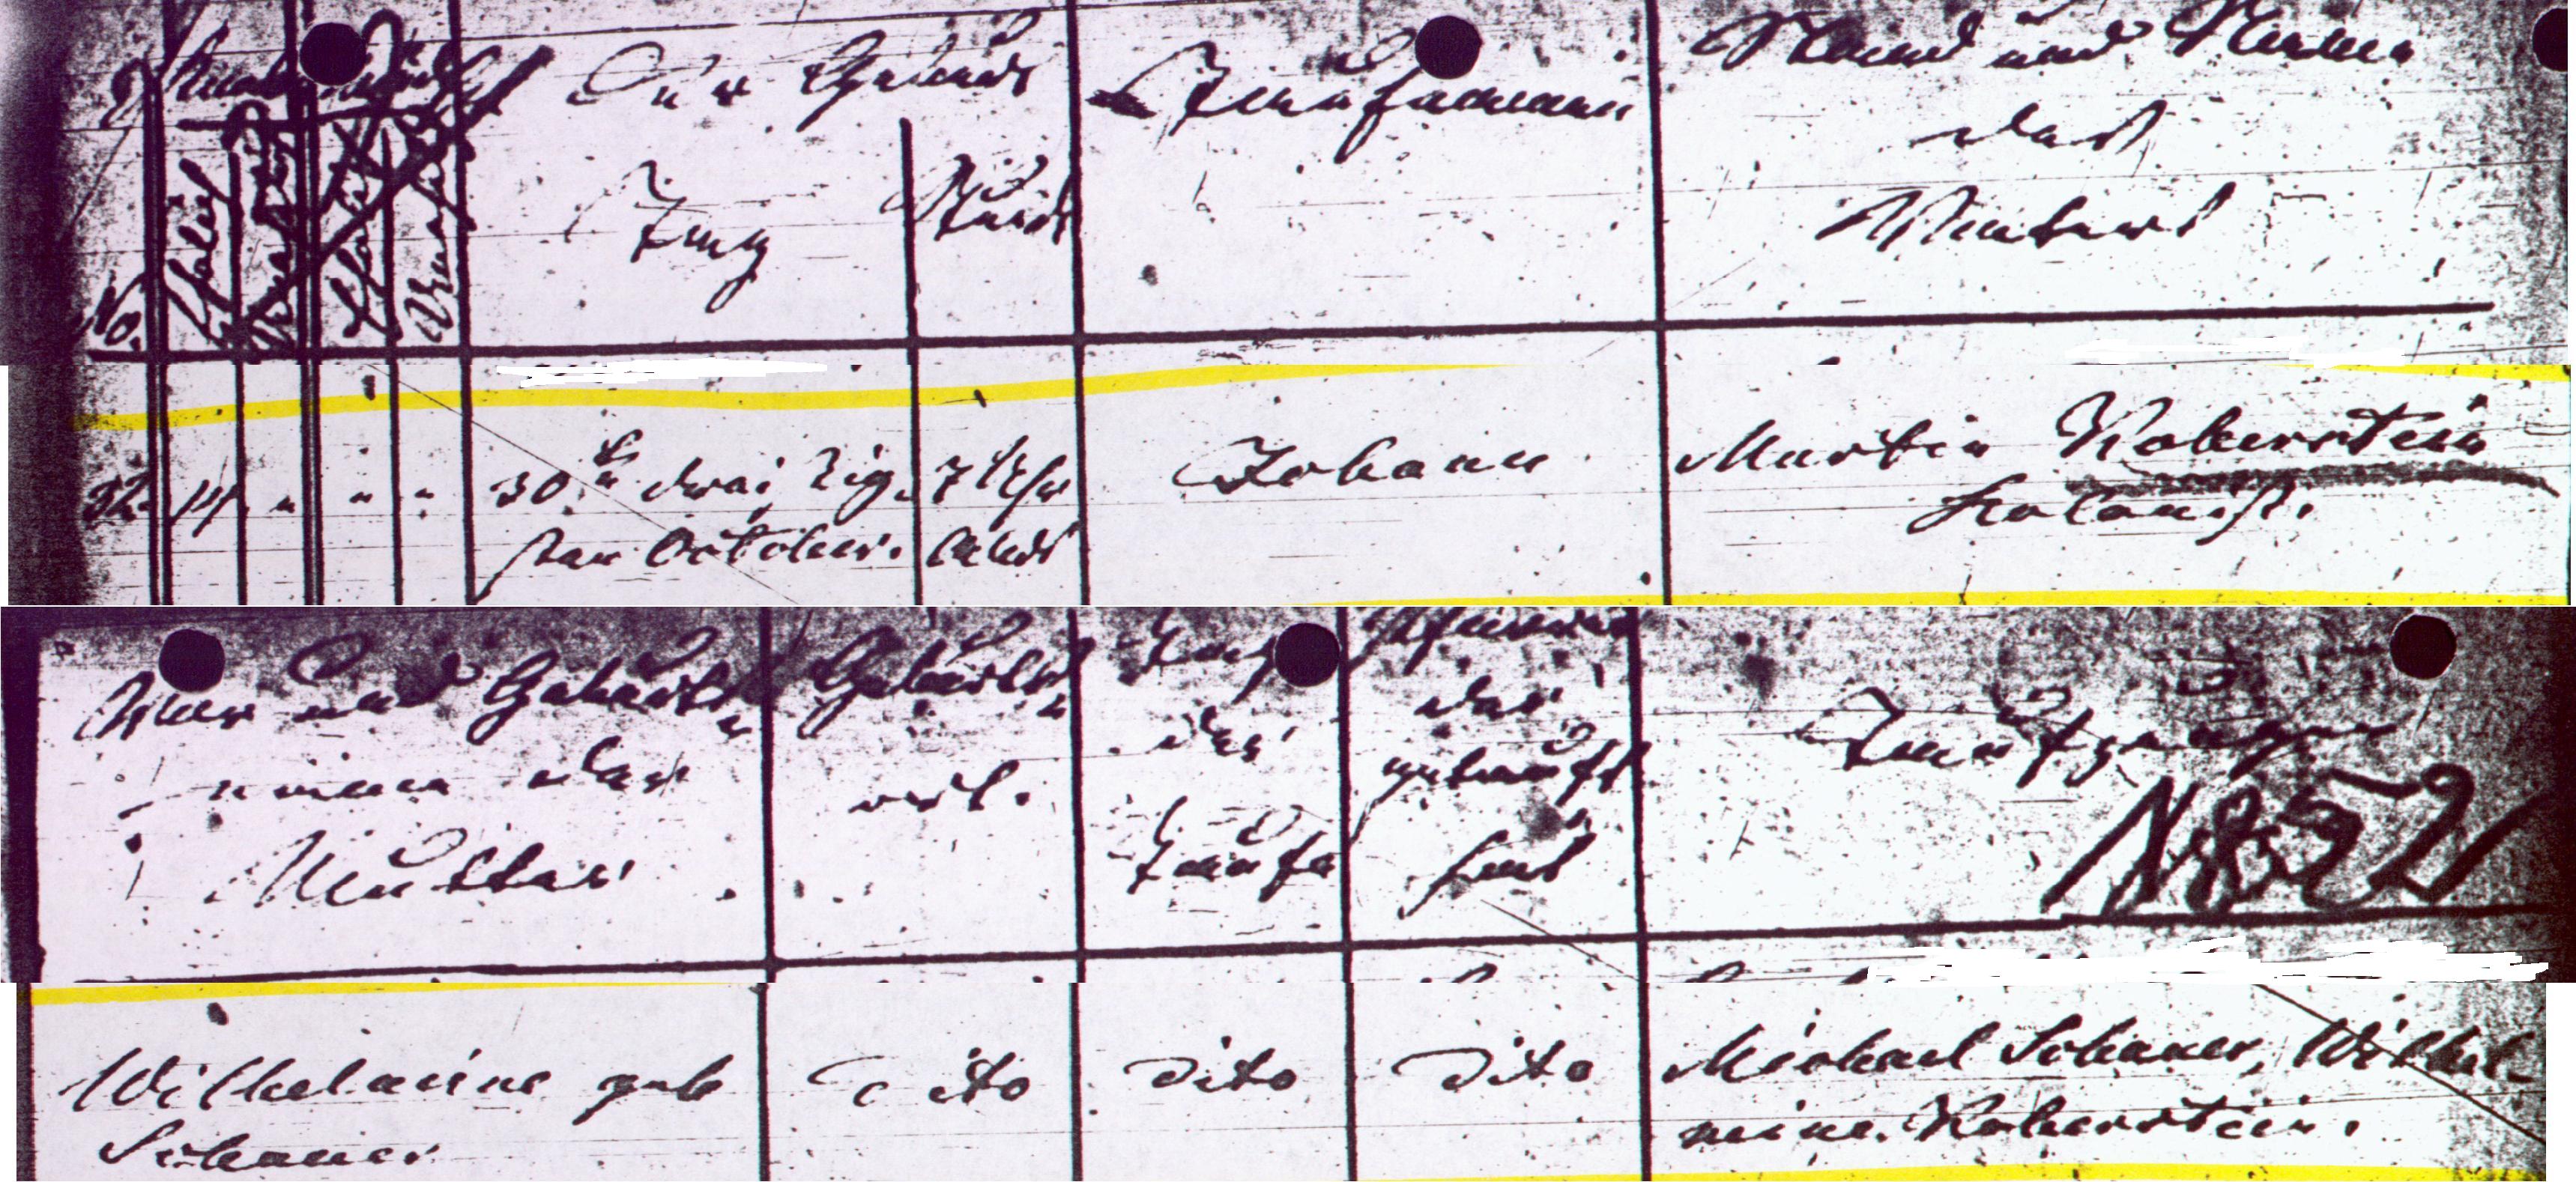 Der Geburts
Taufnamen
Stand und Name
des
Vaters
Tag
Stunde
No.
32. 14. " " "
30ten dreißig-
sten October.
7 Uhr
Abends
Johann
Martin Roberstein
Kolonist.
Vor und Geburts-
namen der
Mutter
Geburts-
ort.
Tag
der
Taufe
Pfarrer
der
getauft
hat
Taufzeugen
1852
Wilhelmine geb
Schauer
Dito
Dito
Dito
Michael Schauer, Wilhel-
mine Roberstein.